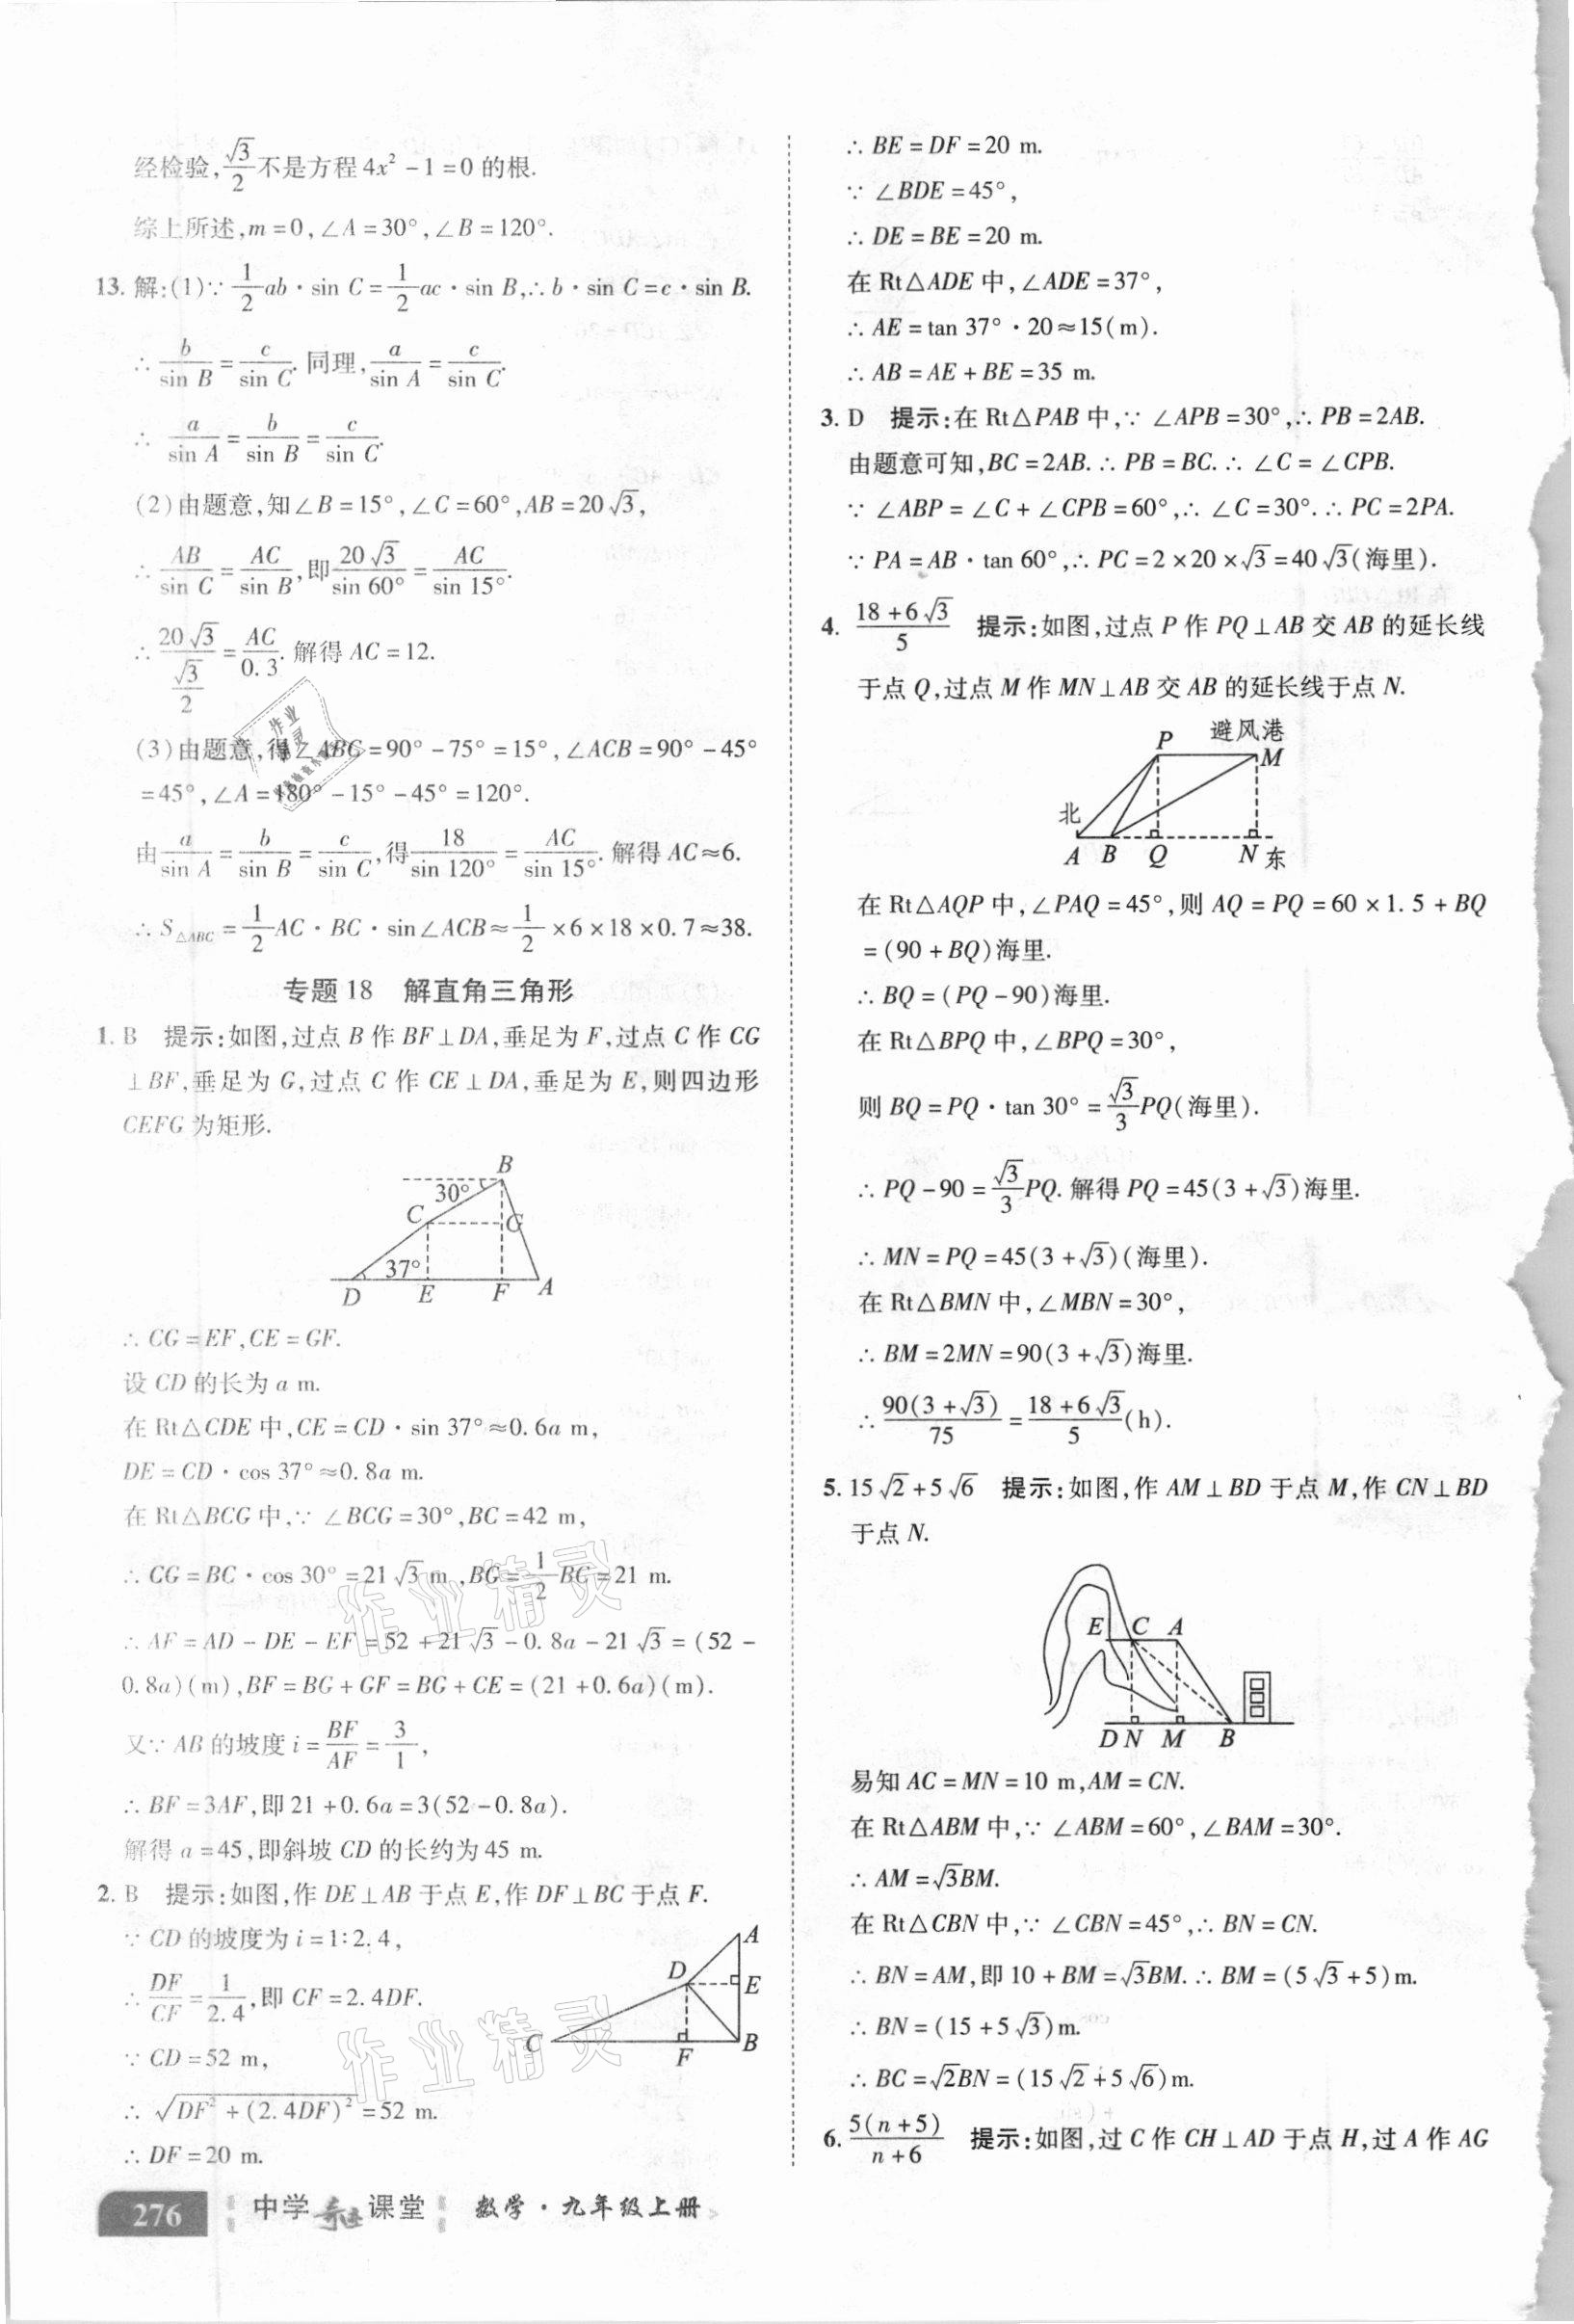 经检验,√3/2不是方程4x²-1=0的根.
综上所述,m=0,∠A=30°,∠B=120°.
13. 解:(1)∵1/2ab·sin C=1/2ac·sin B,∴b·sin C=c·sin B.
∴b/sin B=c/sin C.同理,a/sin A=c/sin C.
∴a/sin A=b/sin B=c/sin C.
(2)由题意,知∠B=15°,∠C=60°,AB=20√3,
∴AB/sin C=AC/sin B,即20√3/sin 60°=AC/sin 15°.
∴20√3/(√3/2)=AC/0.3.解得AC=12.
(3)由题意,得∠ABC=90°-75°=15°,∠ACB=90°-45°
=45°,∠A=180°-15°-45°=120°.
由a/sin A=b/sin B=c/sin C,得18/sin 120°=AC/sin 15°.解得AC≈6.
∴S△ABC=1/2AC·BC·sin∠ACB≈1/2×6×18×0.7≈38.
专题18 解直角三角形
1. B 提示:如图,过点B作BF⊥DA,垂足为F,过点C作CG
⊥BF,垂足为G,过点C作CE⊥DA,垂足为E,则四边形
CEFG为矩形.
B
30°
C
G
37°
D E F A
∴CG=EF,CE=GF.
设CD的长为a m.
在Rt△CDE中,CE=CD·sin 37°≈0.6a m,
DE=CD·cos 37°≈0.8a m.
在Rt△BCG中,∵∠BCG=30°,BC=42 m,
∴CG=BC·cos 30°=21√3 m,BG=1/2BC=21 m.
∴AF=AD-DE-EF=52+21√3-0.8a-21√3=(52-
0.8a)(m),BF=BG+GF=BG+CE=(21+0.6a)(m).
又∵AB的坡度i=BF/AF=3/1,
∴BF=3AF,即21+0.6a=3(52-0.8a).
解得a=45,即斜坡CD的长约为45 m.
2. B 提示:如图,作DE⊥AB于点E,作DF⊥BC于点F.
∵CD的坡度为i=1:2.4,
∴DF/CF=1/2.4,即CF=2.4DF.
∵CD=52 m,
∴√(DF²+(2.4DF)²)=52 m.
∴DF=20 m.
A
D
E
C
F
B
276 中学奇迹课堂 数学·九年级上册
∴BE=DF=20 m.
∵∠BDE=45°,
∴DE=BE=20 m.
在Rt△ADE中,∠ADE=37°,
∴AE=tan 37°·20≈15(m).
∴AB=AE+BE=35 m.
3. D 提示:在Rt△PAB中,∵∠APB=30°,∴PB=2AB.
由题意可知,BC=2AB.∴PB=BC.∴∠C=∠CPB.
∵∠ABP=∠C+∠CPB=60°,∴∠C=30°.∴PC=2PA.
∵PA=AB·tan 60°,∴PC=2×20×√3=40√3(海里).
4. (18+6√3)/5 提示:如图,过点P作PQ⊥AB交AB的延长线
于点Q,过点M作MN⊥AB交AB的延长线于点N.
避风港
P
M
北
A B Q N 东
在Rt△AQP中,∠PAQ=45°,则AQ=PQ=60×1.5+BQ
=(90+BQ)海里.
∴BQ=(PQ-90)海里.
在Rt△BPQ中,∠BPQ=30°,
则BQ=PQ·tan 30°=√3/3PQ(海里).
∴PQ-90=√3/3PQ.解得PQ=45(3+√3)海里.
∴MN=PQ=45(3+√3)(海里).
在Rt△BMN中,∠MBN=30°,
∴BM=2MN=90(3+√3)海里.
∴90(3+√3)/75=(18+6√3)/5(h).
5. 15√2+5√6 提示:如图,作AM⊥BD于点M,作CN⊥BD
于点N.
E C A
D N M B
易知AC=MN=10 m,AM=CN.
在Rt△ABM中,∵∠ABM=60°,∠BAM=30°.
∴AM=√3BM.
在Rt△CBN中,∵∠CBN=45°,∴BN=CN.
∴BN=AM,即10+BM=√3BM.∴BM=(5√3+5)m.
∴BN=(15+5√3)m.
∴BC=√2BN=(15√2+5√6)m.
6. 5(n+5)/(n+6) 提示:如图,过C作CH⊥AD于点H,过A作AG
作业精灵
作业精灵